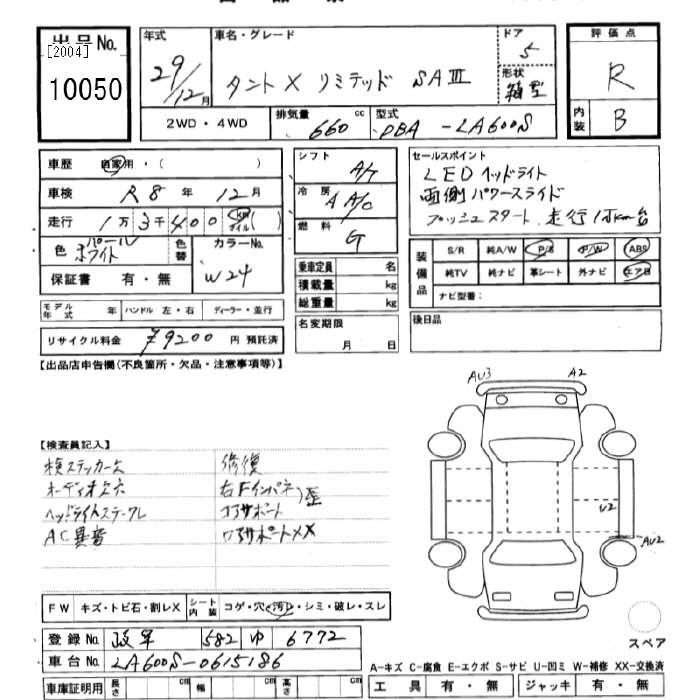 出品No.
[2004]
10050
年式
29/12月
車名・グレード
タント X リミテッド SAⅢ
ドア
5
形状
箱型
評価点
R
内装
B
2WD・4WD
排気量
660 cc
型式
DBA-LA600S
車歴 自家用・( )
車検 R8年 12月
走行 1万3千400 km マイル( )
色 パールホワイト
色替
カラーNo.
W24
保証書 有・無
シフト A/T
冷房 A A/C
燃料 G
セールスポイント
LED ヘッドライト
両側パワースライド
プッシュスタート 走行1万km台
乗車定員 名
積載量 kg
総重量 kg
装備品
S/R 純A/W P/S P/W ABS
純TV 純ナビ 革シート 外ナビ エアB
ナビ型番:
モデル年式 年 ハンドル 左・右 ディーラー・並行
リサイクル料金 ¥9200 円 預託済
名変期限
月 日
後日品
【出品店申告欄(不良箇所・欠品・注意事項等)】
AU3 A2
【検査員記入】
検ステッカー欠
オーディオ欠穴
ヘッドライトステーワレ
AC異音
修復
右Fインパネ 歪
コアサポート
ロアサポートXX
U2
AU2
FW キズ・トビ石・割レX
シート内装 コゲ・穴・汚レ・シミ・破レ・スレ
スペア
登録No. 582 ゆ 6772
車台No. LA600S-0615186
A-キズ C-腐食 E-エクボ S-サビ U-凹ミ W-補修 XX-交換済
車庫証明用 長さ cm 幅 cm 高さ cm
工具 有・無 ジャッキ 有・無